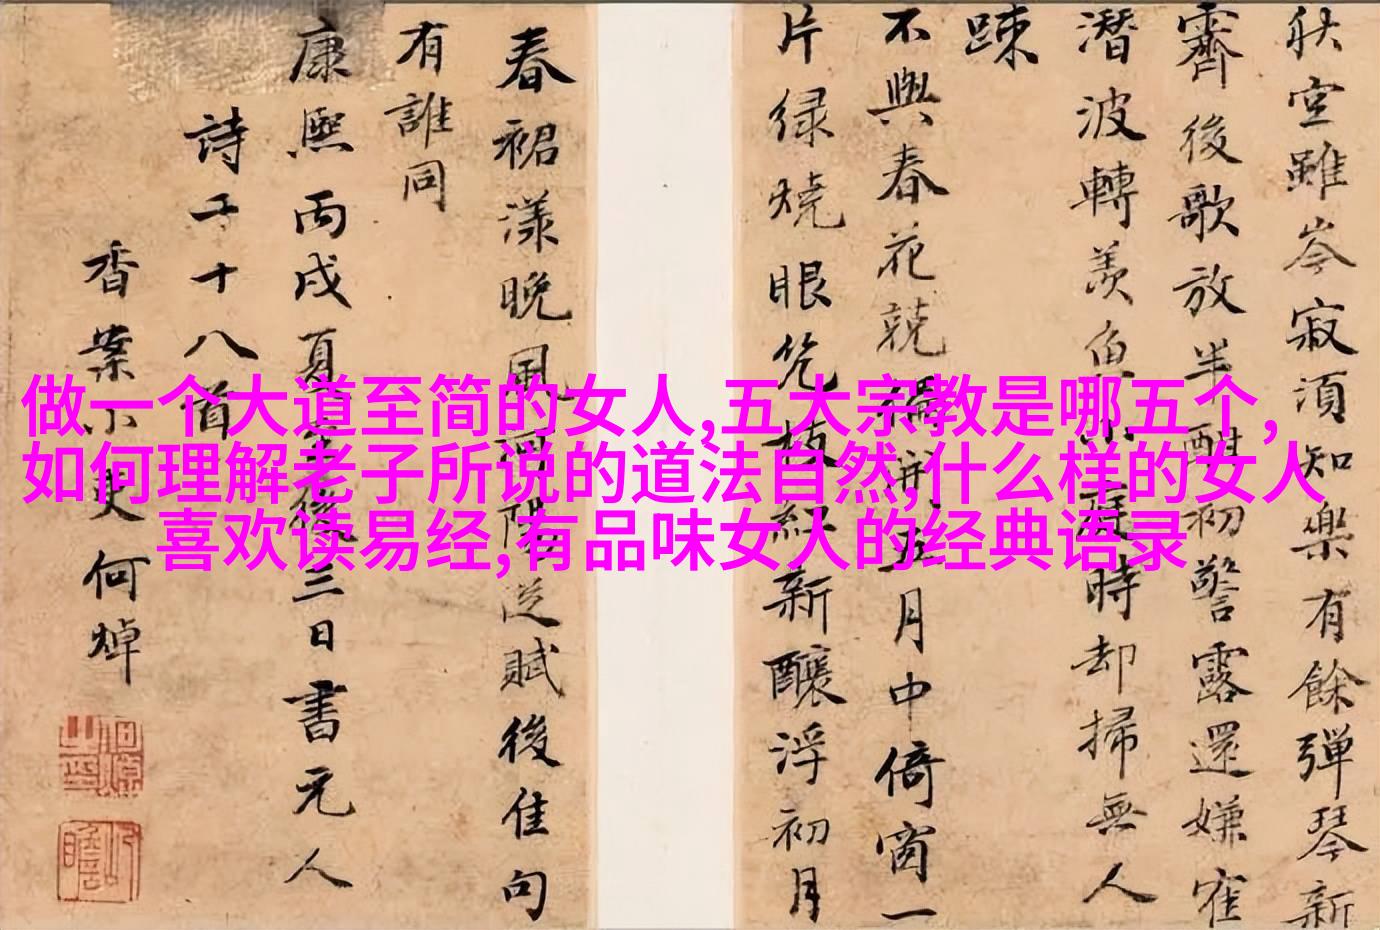 秋空雖岑寂須知樂有餘彈琴新
霽後歌放半酣初警露還嫌寉
潛波轉羨魚小庭時却掃無人
踈
不與春花競獨開五月中倚窗一
片緑燒眼几枝紅新釀浮初月
春裙漾晚風河陽從賦後佳句
有誰同
康熙丙戌夏至後三日書元人
詩二十八首
香案小吏何焯
做一个大道至简的女人,五大宗教是哪五个,
如何理解老子所说的道法自然,什么样的女人
喜欢读易经,有品味女人的经典语录